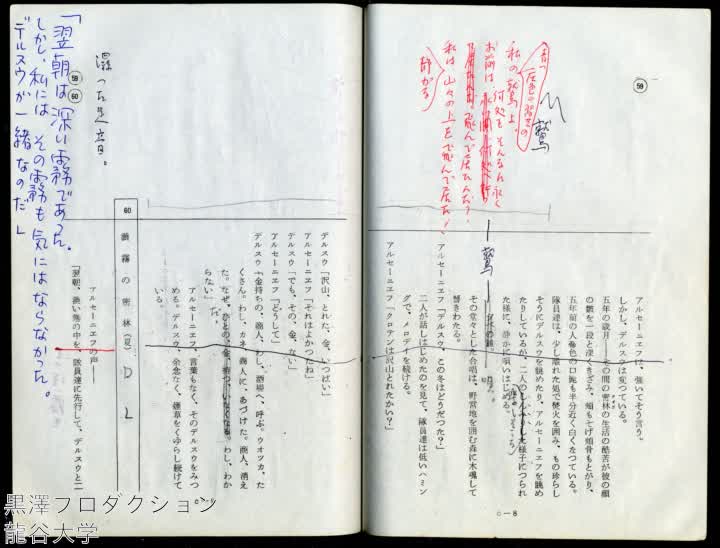 59
鷲
私の鷲よ
お前は何処をそんなに永く
飛んで居たんだ？
私は山々の上を飛んで居た！
静かな
アルセーニエフは、強いてそう言う。
しかし、デルスウは変つている。
五年の歳月――その間の密林の生活の酷苦が彼の顔
の皺を一段と深くきざみ、頬もそげ頬骨もとがり、
五年前の人蔘色の口髭も半分近く白くなつている。
隊員達は、少し離れた処で焚火を囲み、もの珍らし
そうにデルスウを眺めたり、アルセーニエフを眺め
たりしているが、二人のしんみりした様子につられ
た様に、静かに唄いはじめる。
――鷲――
その堂々とした合唱は、野営地を囲む森に木魂して
響きわたる。
アルセーニエフ「デルスウ、この冬はどうだつた？」
二人が話しはじめたのを見て、隊員達は低いハミン
グで、メロデイを続ける。
アルセーニエフ「クロテンは沢山とれたかい？」
c―8
デルスウ「沢山、とれた、金、いつぱい」
アルセーニエフ「それはよかつたね」
デルスウ「でも、その、金、ない」
アルセーニエフ「どうして」
デルスウ「金持ちの、商人、わし、酒場へ、呼ぶ。ウオツカ、た
くさん。わし、カネ、商人に、あづけた。商人、消え
た。なぜ、ひとの、金、持つ、いなくなる。わし、わか
らない」
アルセーニエフ、言葉もなく、そのデルスウをみつ
める。デルスウ、余念なく、煙草をくゆらし続けて
いる。
60 濃霧の密林（夏）DL
アルセーニエフの声――
「翌朝、濃い霧の中を、隊員達に先行して、デルスウと二
湿った足音。
59
60
「翌朝は深い霧であった。
しかし、私には その霧も気にはならなかった。
デルスウが一緒なのだ」
黒澤プロダクション
龍谷大学